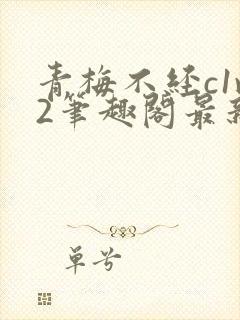 青梅不经c1v
2笔趣阁最新
单兮